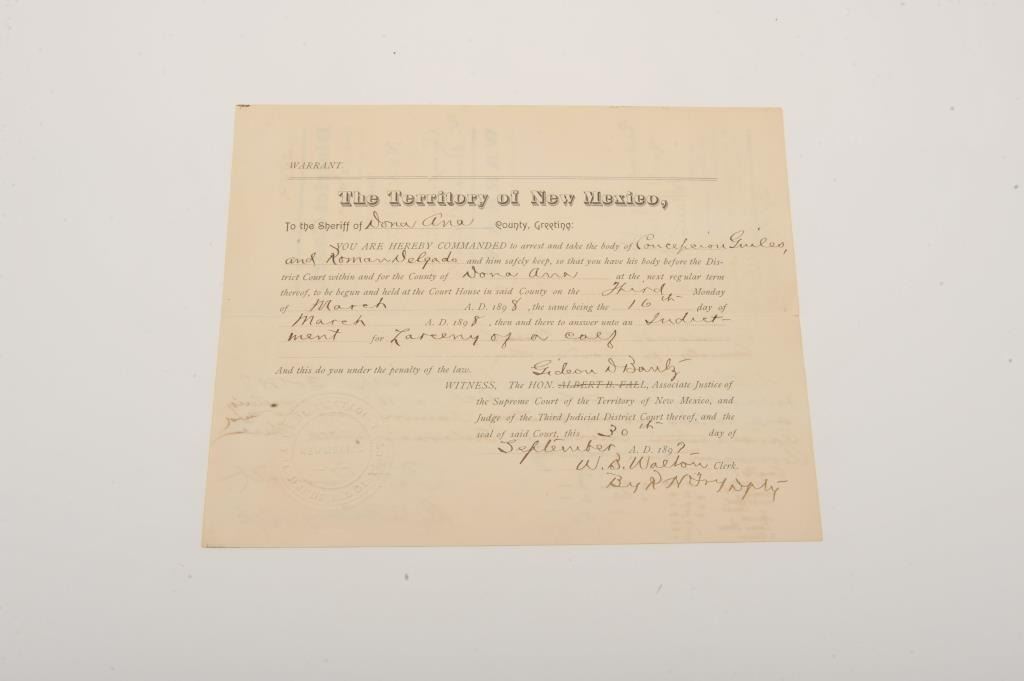 WARRANT.
The Territory of New Mexico,
To the Sheriff of Dona Ana County, Greeting:
YOU ARE HEREBY COMMANDED to arrest and take the body of Concepcion Guiles,
and Roman Delgado and him safely keep, so that you have his body before the Dis-
trict Court within and for the County of Dona Ana at the next regular term
thereof, to be begun and held at the Court House in said County on the Third Monday
of March A. D. 1898, the same being the 16th day of
March A. D. 1898, then and there to answer unto an Indict-
ment for Larceny of a calf
And this do you under the penalty of the law. Gideon D Bantz
WITNESS, The HON. ALBERT B. FALL, Associate Justice of
the Supreme Court of the Territory of New Mexico, and
Judge of the Third Judicial District Court thereof, and the
seal of said Court, this 30th day of
September A. D. 1897
W. B. Walton Clerk.
By R N Fry Dpty